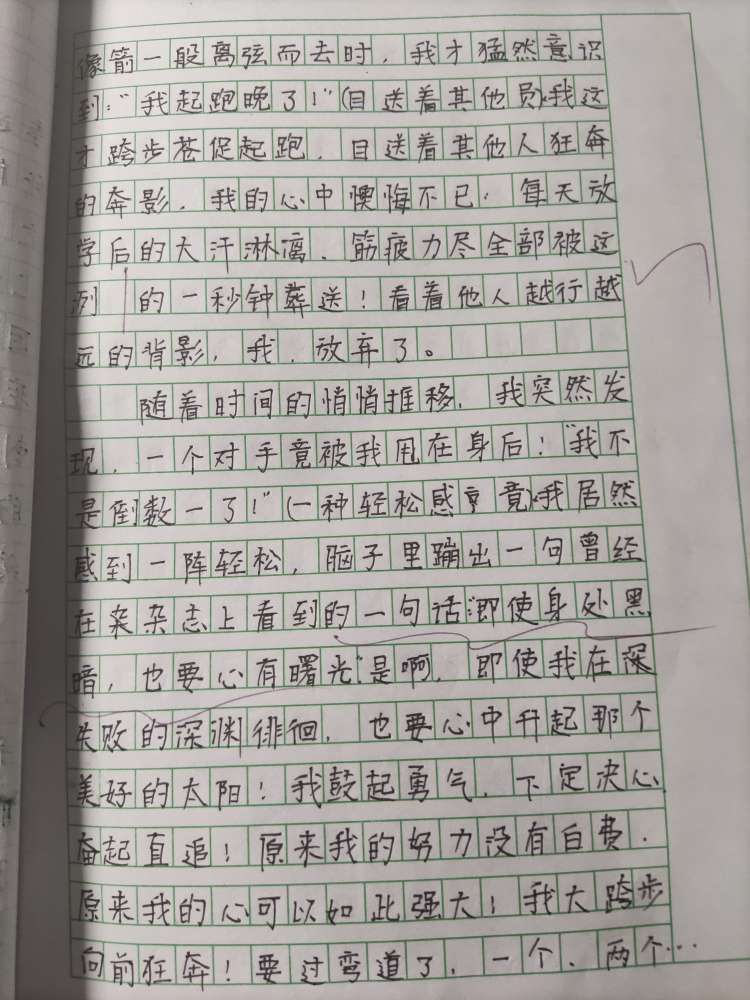 像箭一般离弦而去时，我才猛然意识
到：“我起跑晚了！”（目送着其他员）我这
才跨步苍促起跑，目送着其他人狂奔
的奔影，我的心中懊悔不已，每天放
学后的大汗淋漓、筋疲力尽全部被这
别的一秒钟葬送！看着他人越行越
远的背影，我，放弃了。
随着时间的悄悄推移，我突然发
现，一个对手竟被我甩在身后！“我不
是倒数一了！”（一种轻松感竟）我居然
感到一阵轻松，脑子里蹦出一句曾经
在杂杂志上看到的一句话：“即使身处黑
暗，也要心有曙光”是啊，即使我在深
失败的深渊徘徊，也要心中升起那个
美好的太阳！我鼓起勇气，下定决心
奋起直追！原来我的努力没有白费，
原来我的心可以如此强大！我大跨步
向前狂奔！要过弯道了，一个、两个…